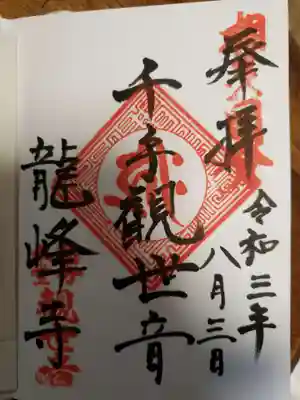 奉拝
令和三年
八月三日
千手観世音
龍峰寺